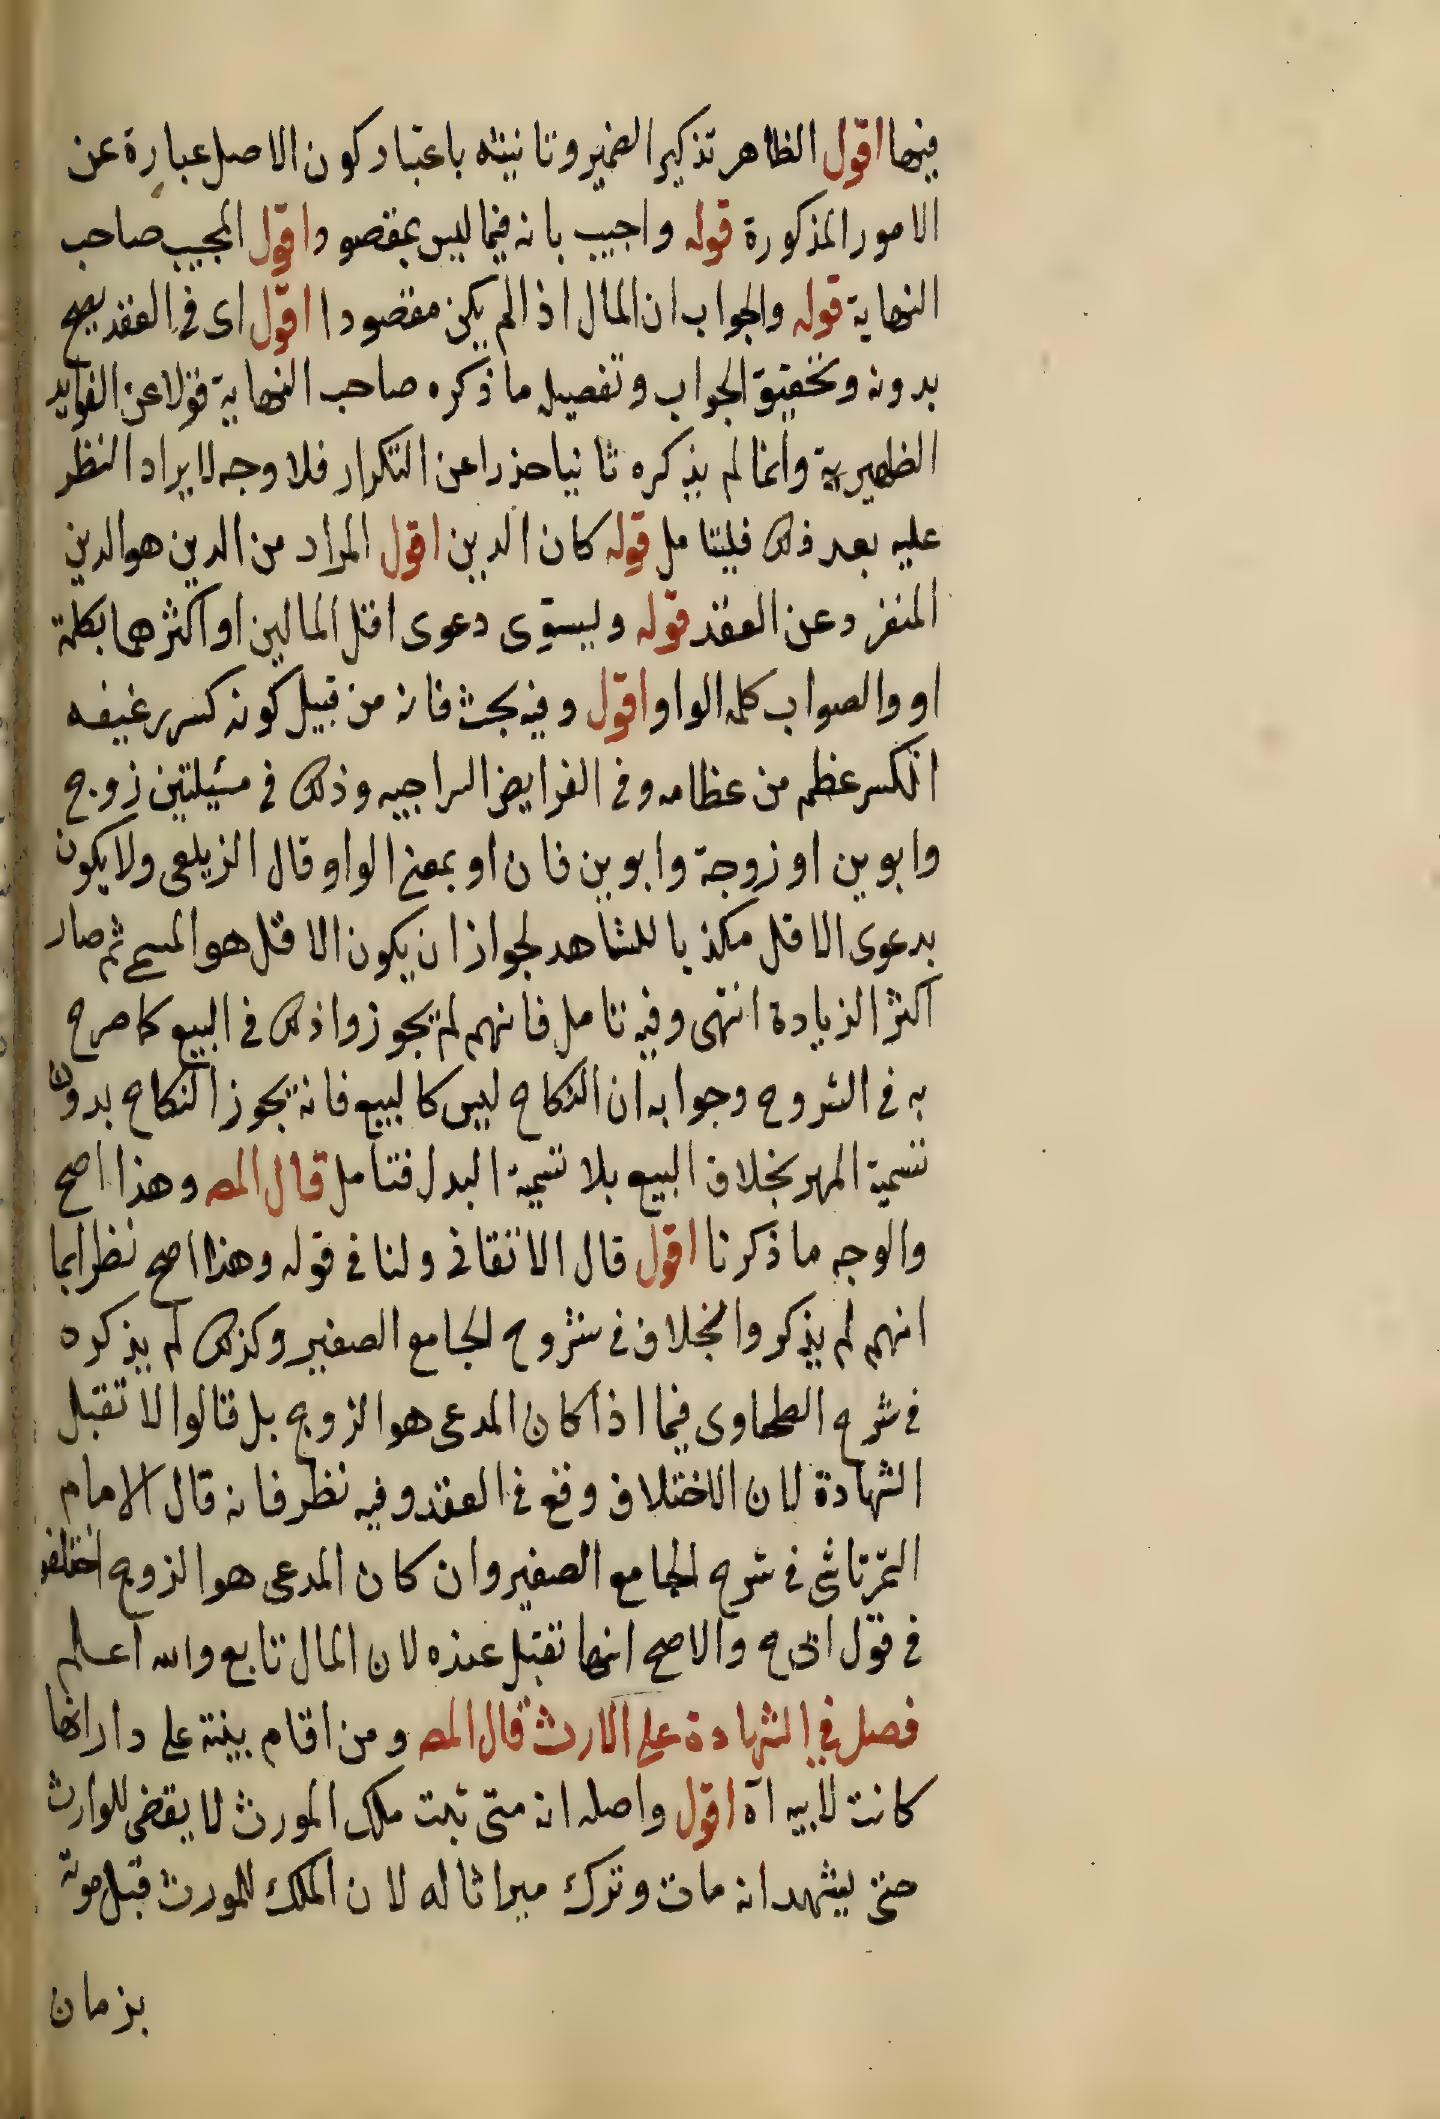 فيها اقول الظاهر تذكير الضمير وتانيثه باعتبار كون الاصل عبارة عن
الامور المذكورة قوله واجيب بانه فيما ليس بمقصود اقول المجيب صاحب
النهاية قوله والجواب ان المال اذا لم يكن مقصودا اقول اى فى العقد يصح
بدونه وتحقيق الجواب وتفصيل ما ذكره صاحب النهاية قولا عن الفوايد
الظهيرية وانما لم يذكره ثانيا حذرا عن التكرار فلا وجه لايراد النظر
عليه بعد ذلك فليتامل قوله كان الدين اقول المراد من الدين هو الدين
المنفرد عن العقد قوله ويستوى دعوى اقل المالين او اكثرهما بكلمة
او والصواب كلمه الواو اقول وفيه بحث فانه من قبيل كونه كسر رغيفه
انكسر عظم من عظامه وفى الفرايض السراجيه وذلك فى مسيلتين زوج
وابوين او زوجة وابوين فان او بمعنى الواو قال الزيلعى ولا يكون
بدعوى الاقل مكذبا للشاهد لجواز ان يكون الاقل هو المسمى ثم صار
اكثر الزيادة انتهى وفيه تامل فانهم لم يجوزوا ذلك فى البيع كما صرح
به فى الشروح وجوابه ان النكاح ليس كالبيع فانه يجوز النكاح بدون
تسمية المهر بخلاف البيع بلا تسمية البدل فتامل قال المص وهذا اصح
والوجه ما ذكرنا اقول قال الاتقانى ولنا فى قوله وهذا اصح نظر ايما
انهم لم يذكروا الخلاف فى شروح الجامع الصغير وكذلك لم يذكره
فى شرح الطحاوى فيما اذا كان المدعى هو الزوج بل قالوا لا تقبل
الشهادة لان الاختلاف وقع فى العقد وفيه نظر فانه قال الامام
التمرتاشى فى شرح الجامع الصغير وان كان المدعى هو الزوج اختلفوا
فى قول ابى ح والاصح انها تقبل عنده لان المال تابع والله اعلم
فصل فى الشهادة على الارث قال المص ومن اقام بينة على دار انها
كانت لابيه اه اقول واصله انه متى ثبت ملك المورث لا يقضى للوارث
حتى يشهد انه مات وترك ميراثا له لان الملك للمورث قبل موته
بزمان